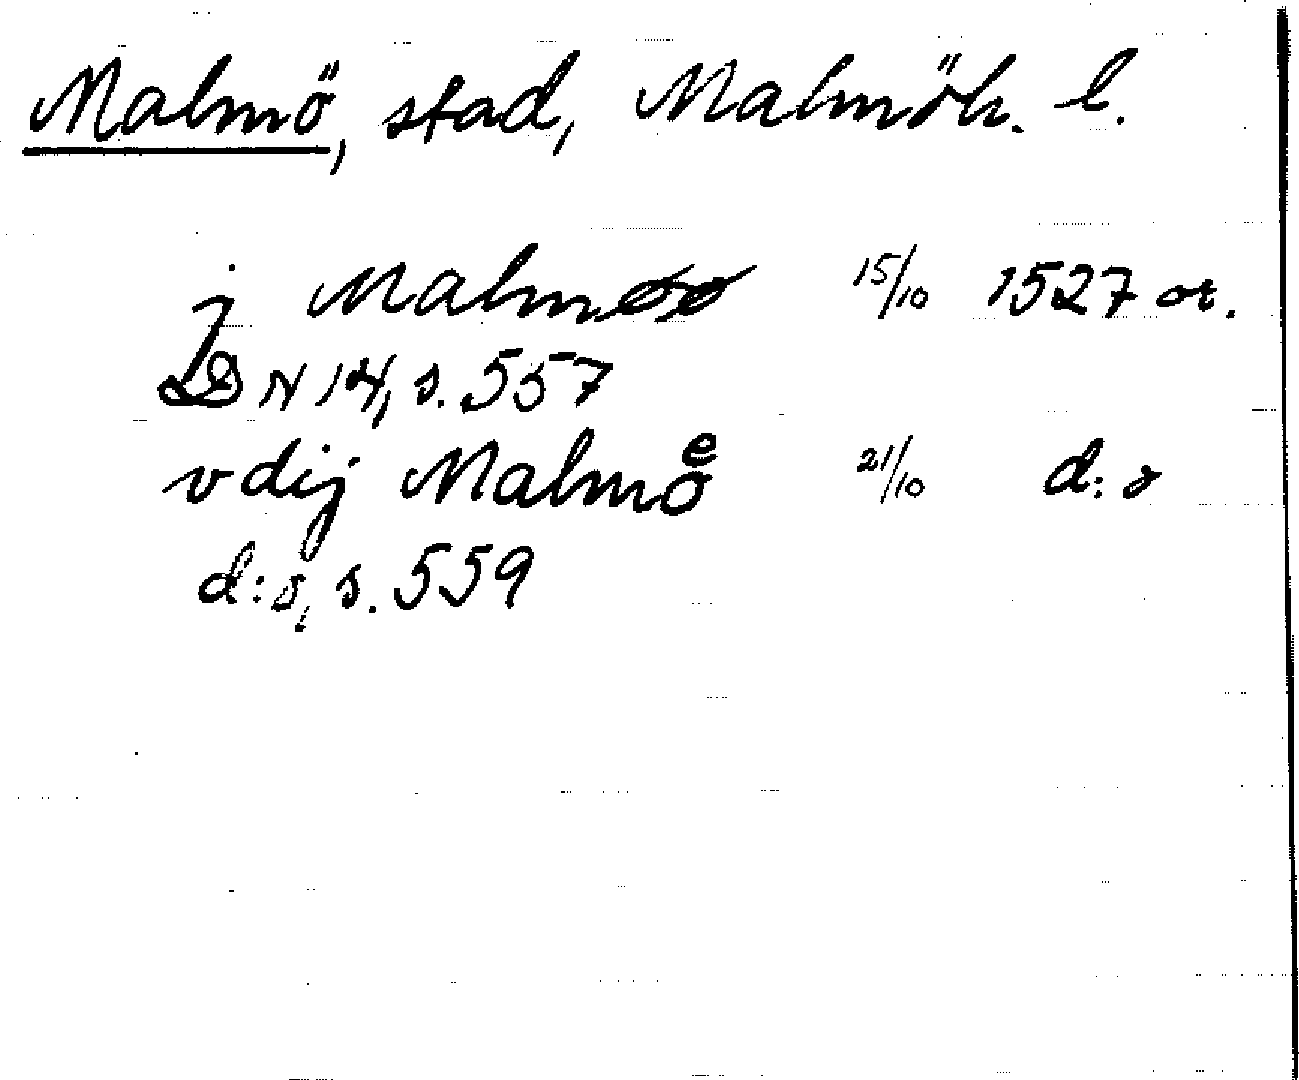 Malmö, stad, Malmöh. l.
j Malmøø 15/10 1527 or.
DN 14, s. 557
vdij Malmoͤ 21/10 d:o
d:o, s. 559